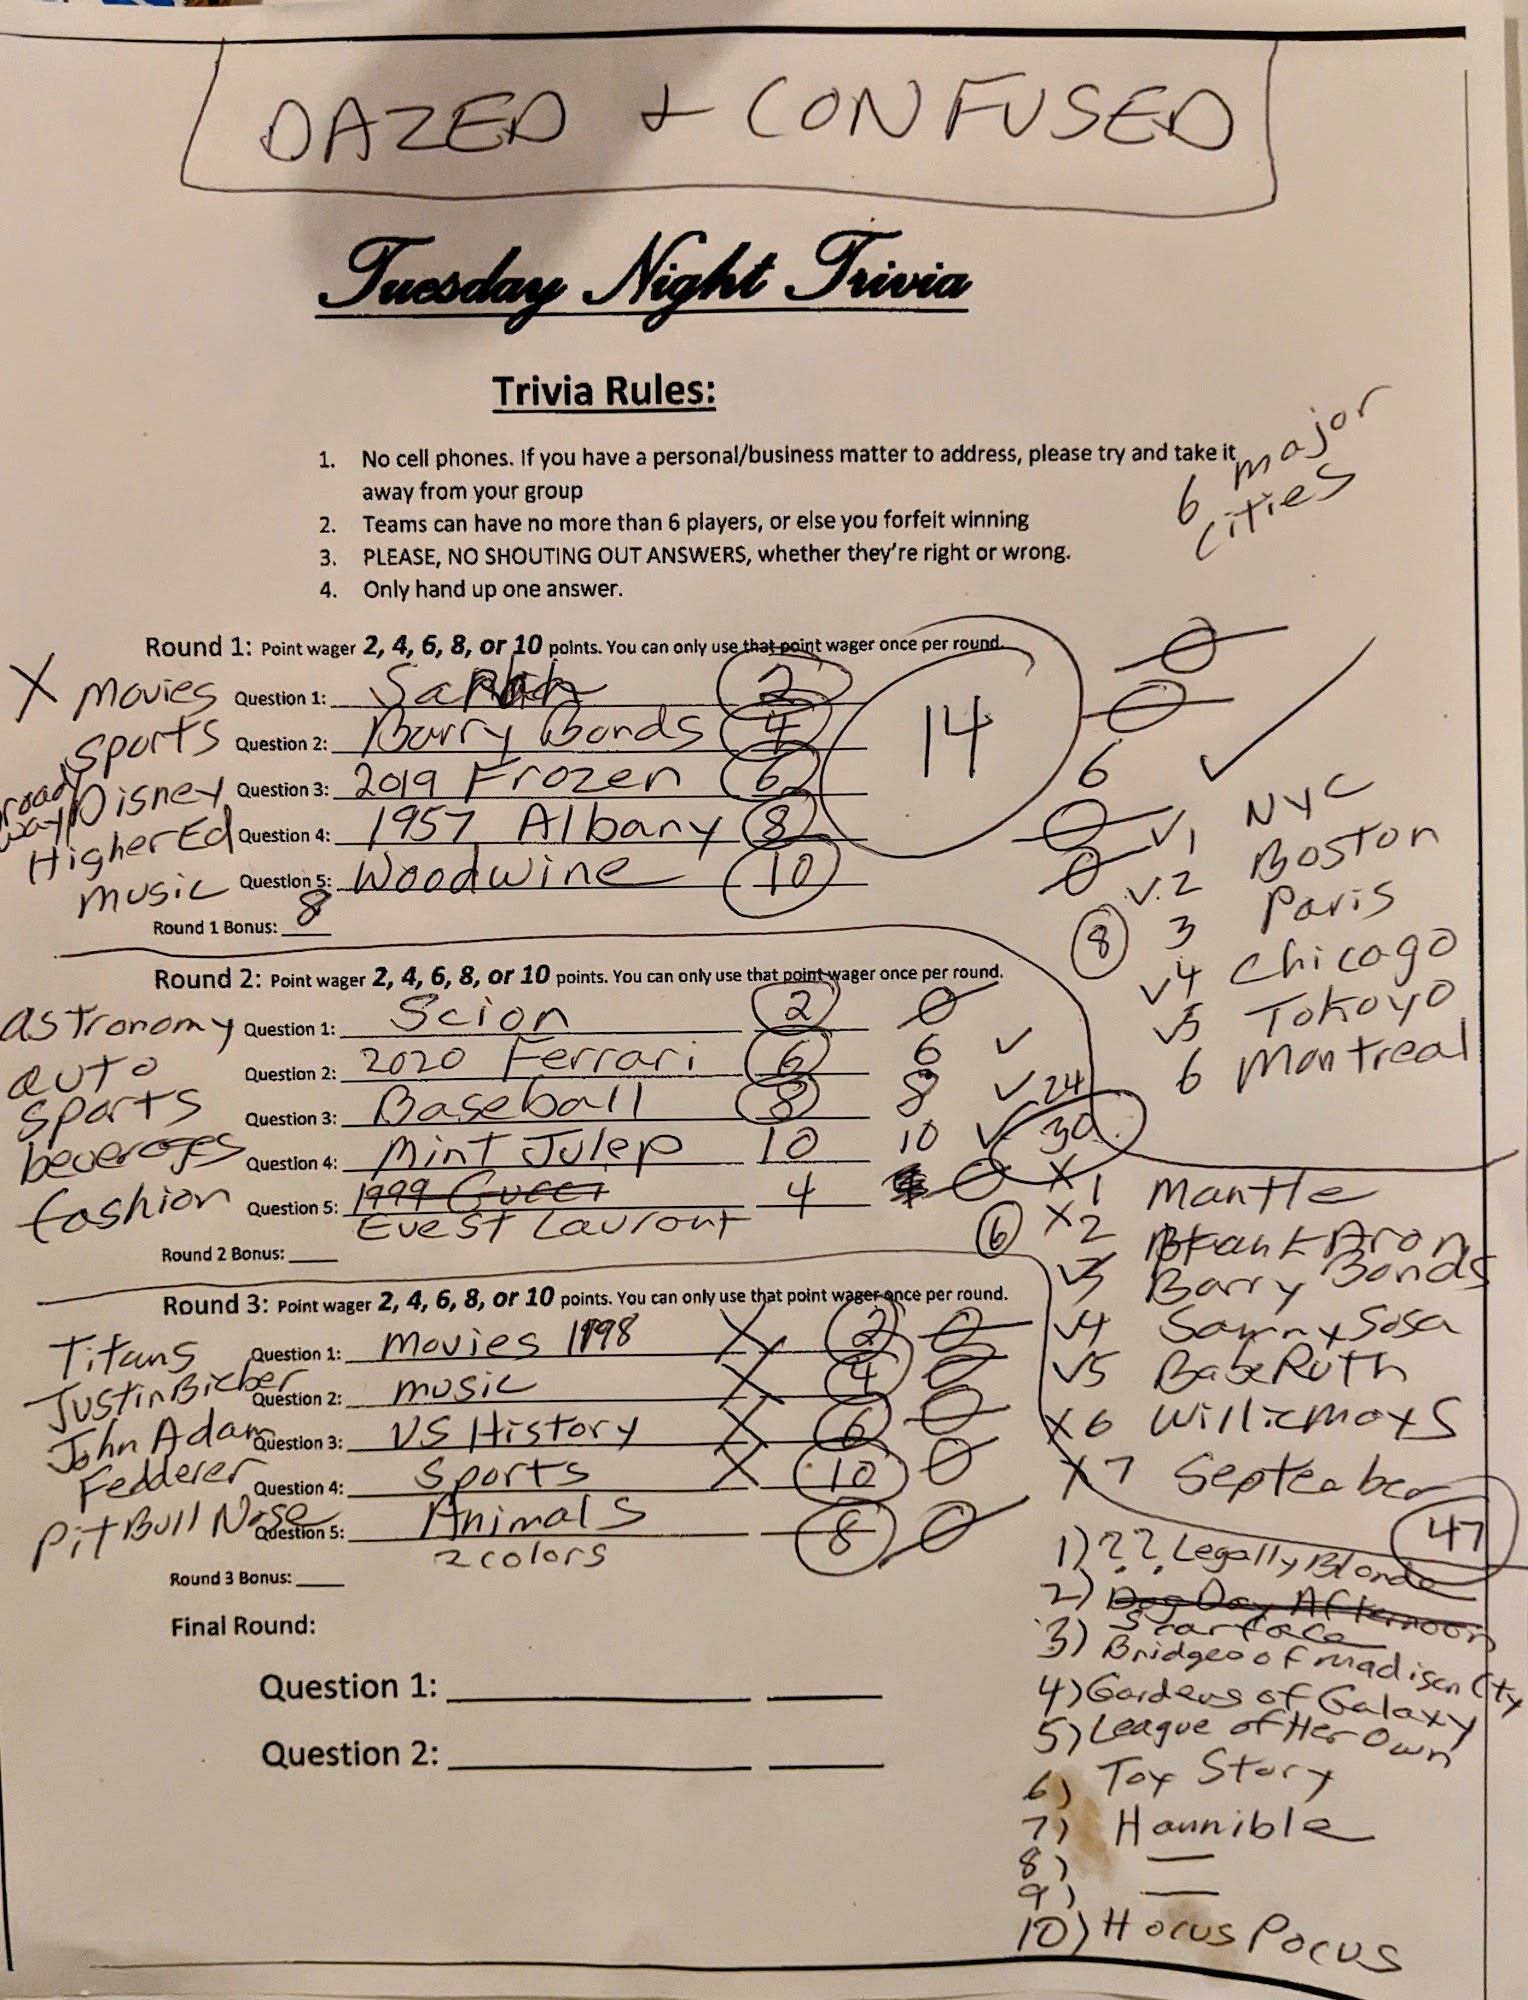 DAZED + CONFUSED
Tuesday Night Trivia
Trivia Rules:
1. No cell phones. If you have a personal/business matter to address, please try and take it
away from your group
2. Teams can have no more than 6 players, or else you forfeit winning
3. PLEASE, NO SHOUTING OUT ANSWERS, whether they're right or wrong.
4. Only hand up one answer.
6 major
cities
Round 1: Point wager 2, 4, 6, 8, or 10 points. You can only use that point wager once per round.
X movies Question 1: Sarah 2 0
Sports Question 2: Barry Bonds 4 0
Disney Question 3: 2019 Frozen 6 6 ✓
Higher Ed Question 4: 1957 Albany 8 0
music Question 5: Woodwine 10 0
14
Round 1 Bonus: 8
✓1 NYC
✓2 Boston
3 Paris
8
✓4 Chicago
✓5 Tokoyo
6 Montreal
Round 2: Point wager 2, 4, 6, 8, or 10 points. You can only use that point wager once per round.
astronomy Question 1: Scion 2 0
auto Question 2: 2020 Ferrari 6 6 ✓
sports Question 3: Baseball 8 8 ✓ 24
beverages Question 4: Mint Julep 10 10 ✓ 30
fashion Question 5: 1999 Gucci 4 0
Eve St Laurant
Round 2 Bonus:
6
X1 Mantle
X2 Hank Aron
✓3 Barry Bonds
✓4 Sammy Sosa
✓5 Babe Ruth
X6 Willie Mays
X7 September
47
Round 3: Point wager 2, 4, 6, 8, or 10 points. You can only use that point wager once per round.
Titans Question 1: movies 1998 X 2 0
Justin Bieber Question 2: music X 4 0
John Adams Question 3: US History X 6 0
Fedderer Question 4: Sports X 10 0
Pit Bull Nose Question 5: Animals 8 0
2 colors
Round 3 Bonus:
Final Round:
Question 1:
Question 2:
1) ?? Legally Blonde
2) Dog Day Afternoon
Scarface
3) Bridges of Madison Cty
4) Gardens of Galaxy
5) League of Her Own
6) Toy Story
7) Hannible
8) —
9) —
10) Hocus Pocus